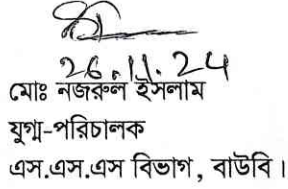 26.11.24
মোঃ নজরুল ইসলাম
যুগ্ম-পরিচালক
এস.এস.এস বিভাগ, বাউবি।